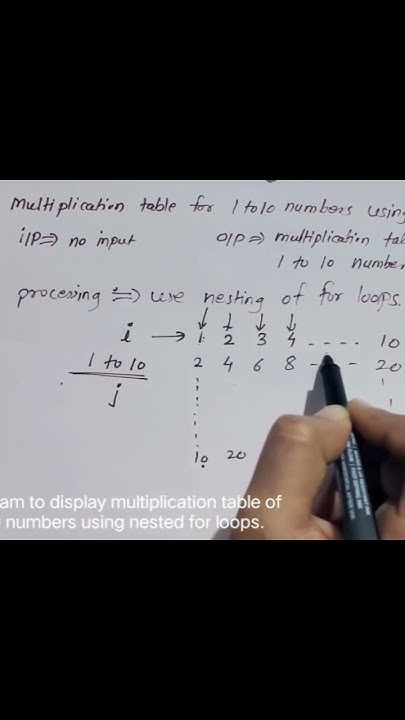 Multiplication table for 1 to 10 numbers using
i/p ⇒ no input
o/p ⇒ multiplication tab
1 to 10 number
processing ⇒ use nesting of for loops.
i → 1 2 3 4 ---- 10
1 to 10 2 4 6 8 --- 20
j
10 20
am to display multiplication table of
numbers using nested for loops.